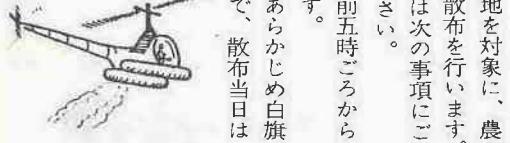 地を対象に、農
散布を行います。
は次の事項にご
さい。
前五時ごろから
す。
あらかじめ白旗
で、散布当日は